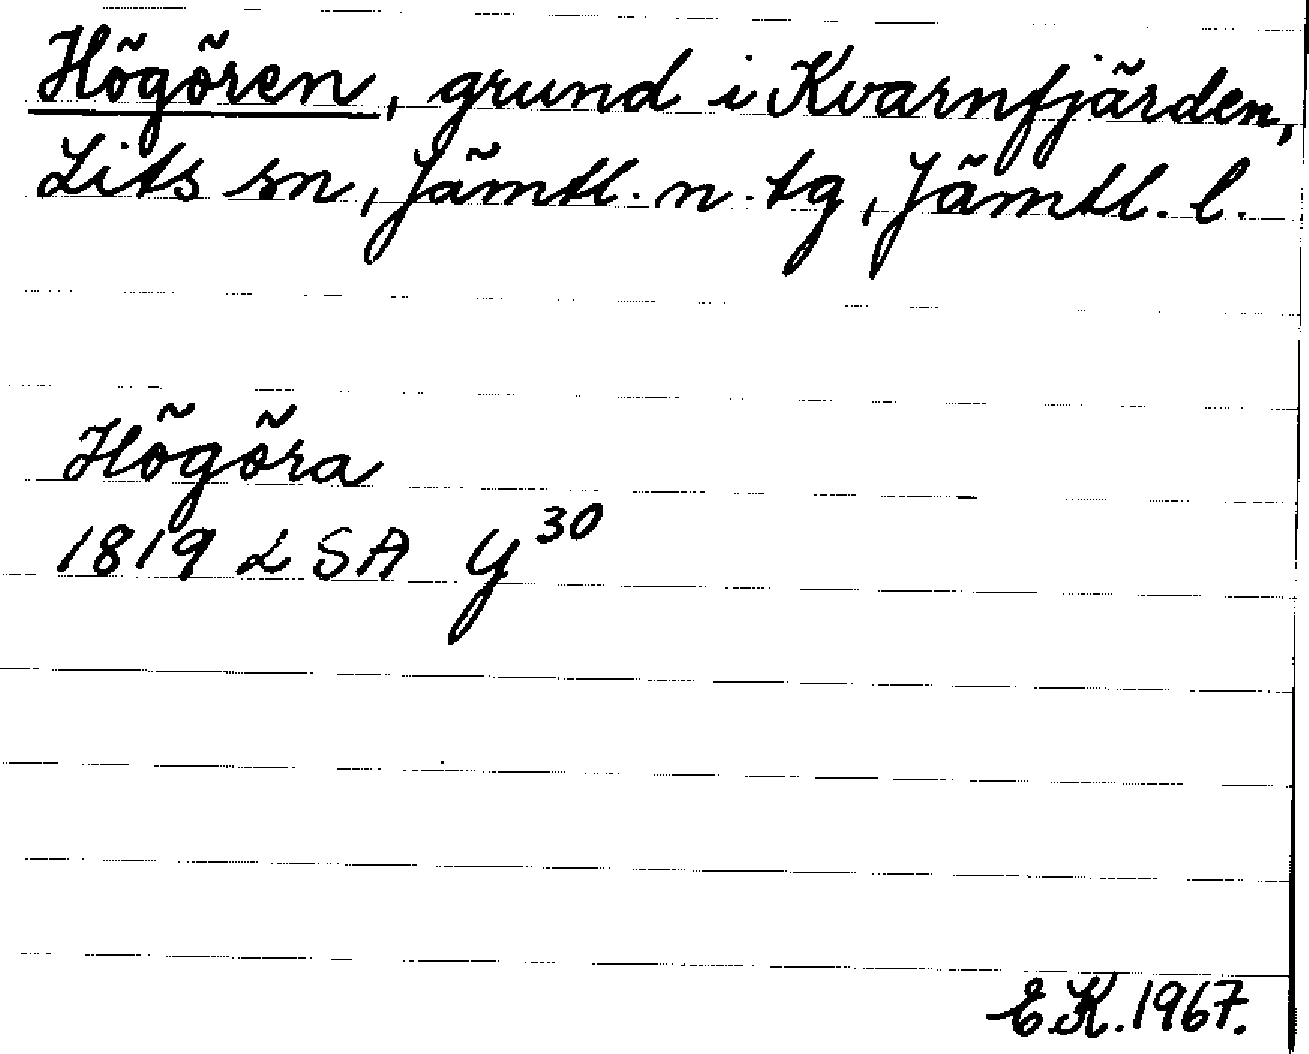 Högören, grund i Kvarnfjärden,
Lits sn, Jämtl. n. tg, Jämtl. l.
Högöra
1819 LSA Y 30
E.K. 1967.